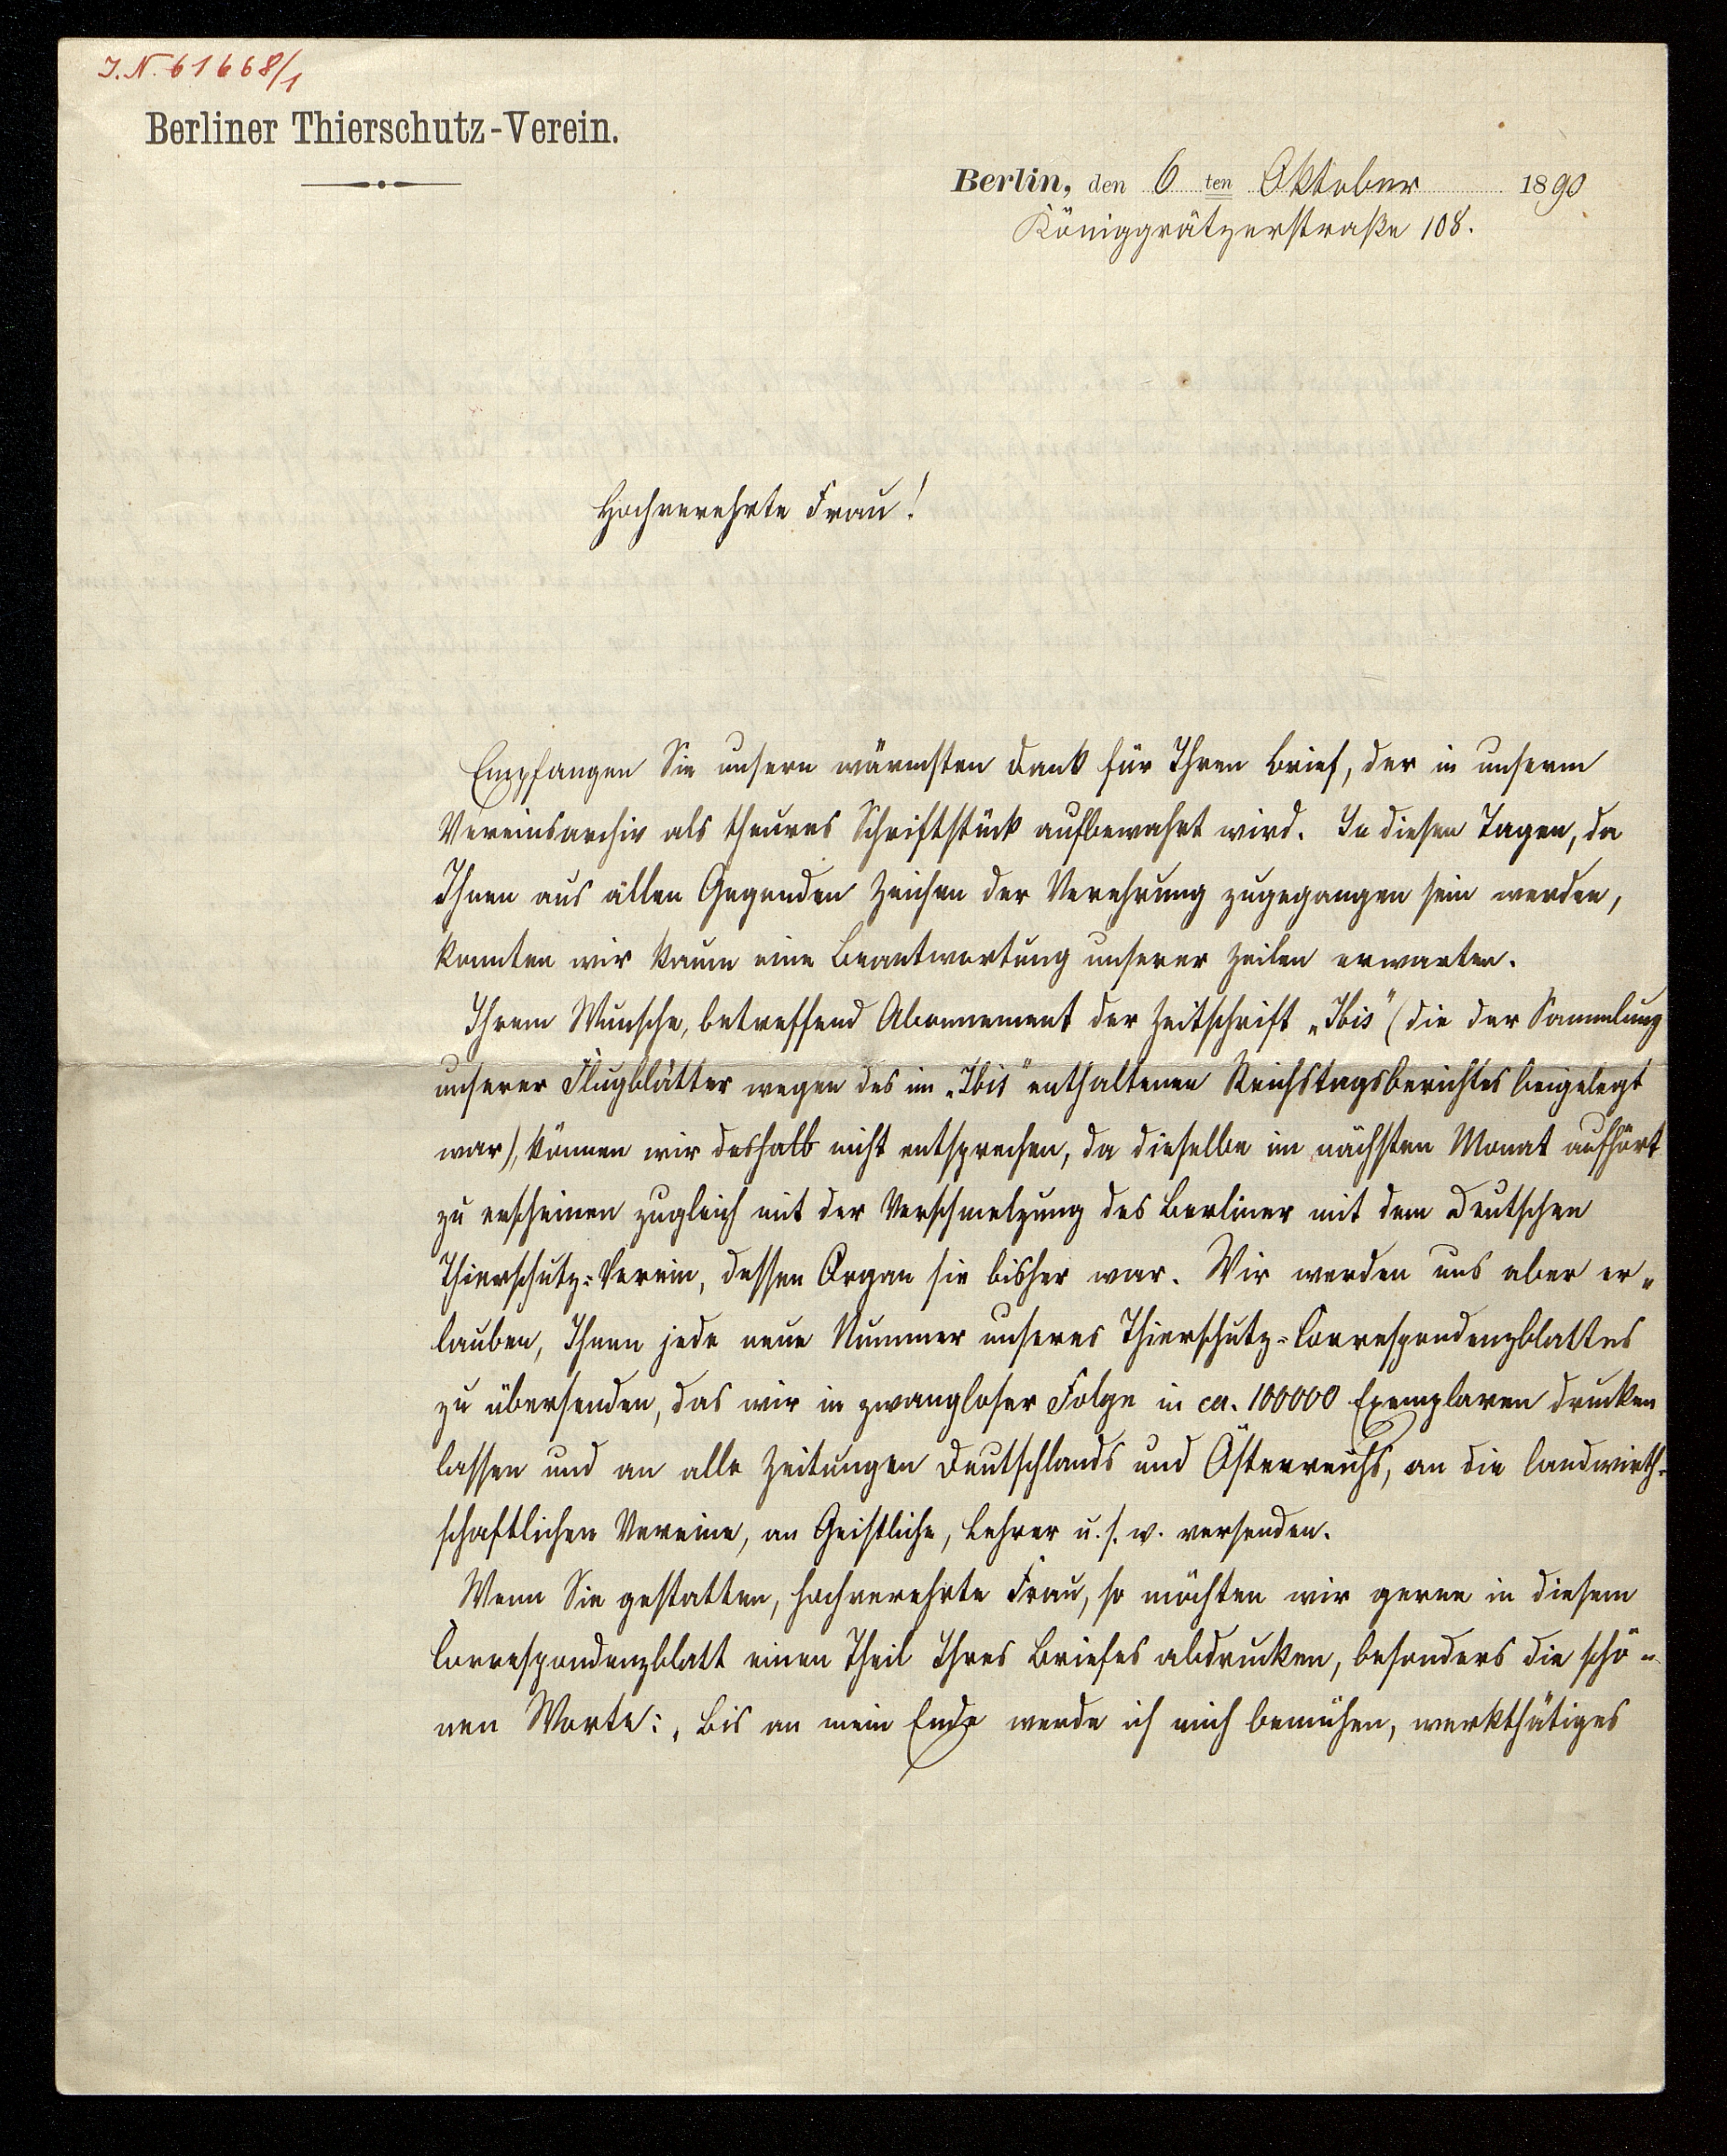 J.N. 61668/1
Berliner Thierschutz-Verein.
Berlin, den 6 ten Oktober 1890
Königgrätzerstraße 108.
Hochverehrte Frau!
Empfangen Sie unsern wärmsten Dank für Ihren Brief, der in unserm
Vereinsarchiv als theures Schriftstück aufbewahrt wird. In diesen Tagen, da
Ihnen aus allen Gegenden Zeichen der Verehrung zugegangen sein werden,
konnten wir kaum eine Beantwortung unserer Zeilen erwarten.
Ihrem Wunsche, betreffend Abonnement der Zeitschrift „Ibis" (die der Sammlung
unserer Flugblätter wegen des im „Ibis" enthaltenen Reichstagsberichtes beigelegt
war), können wir deshalb nicht entsprechen, da dieselbe im nächsten Monat aufhört
zu erscheinen zugleich mit der Verschmelzung des Berliner mit dem Deutschen
Thierschutz=Verein, dessen Organ sie bisher war. Wir werden uns aber er„
lauben, Ihnen jede neue Nummer unseres Thierschutz=Correspondenzblattes
zu übersenden, das wir in zwangloser Folge in ca. 100000 Exemplaren drucken
lassen und an alle Zeitungen Deutschlands und Österreichs, an die landwirth=
schaftlichen Vereine, an Geistliche, Lehrer u. s. w. versenden.
Wenn Sie gestatten, hochverehrte Frau, so möchten wir gerne in diesem
Correspondenzblatt einen Theil Ihres Briefes abdrucken, besonders die schö„
nen Worte: „Bis an mein Ende werde ich mich bemühen, werkthätiges